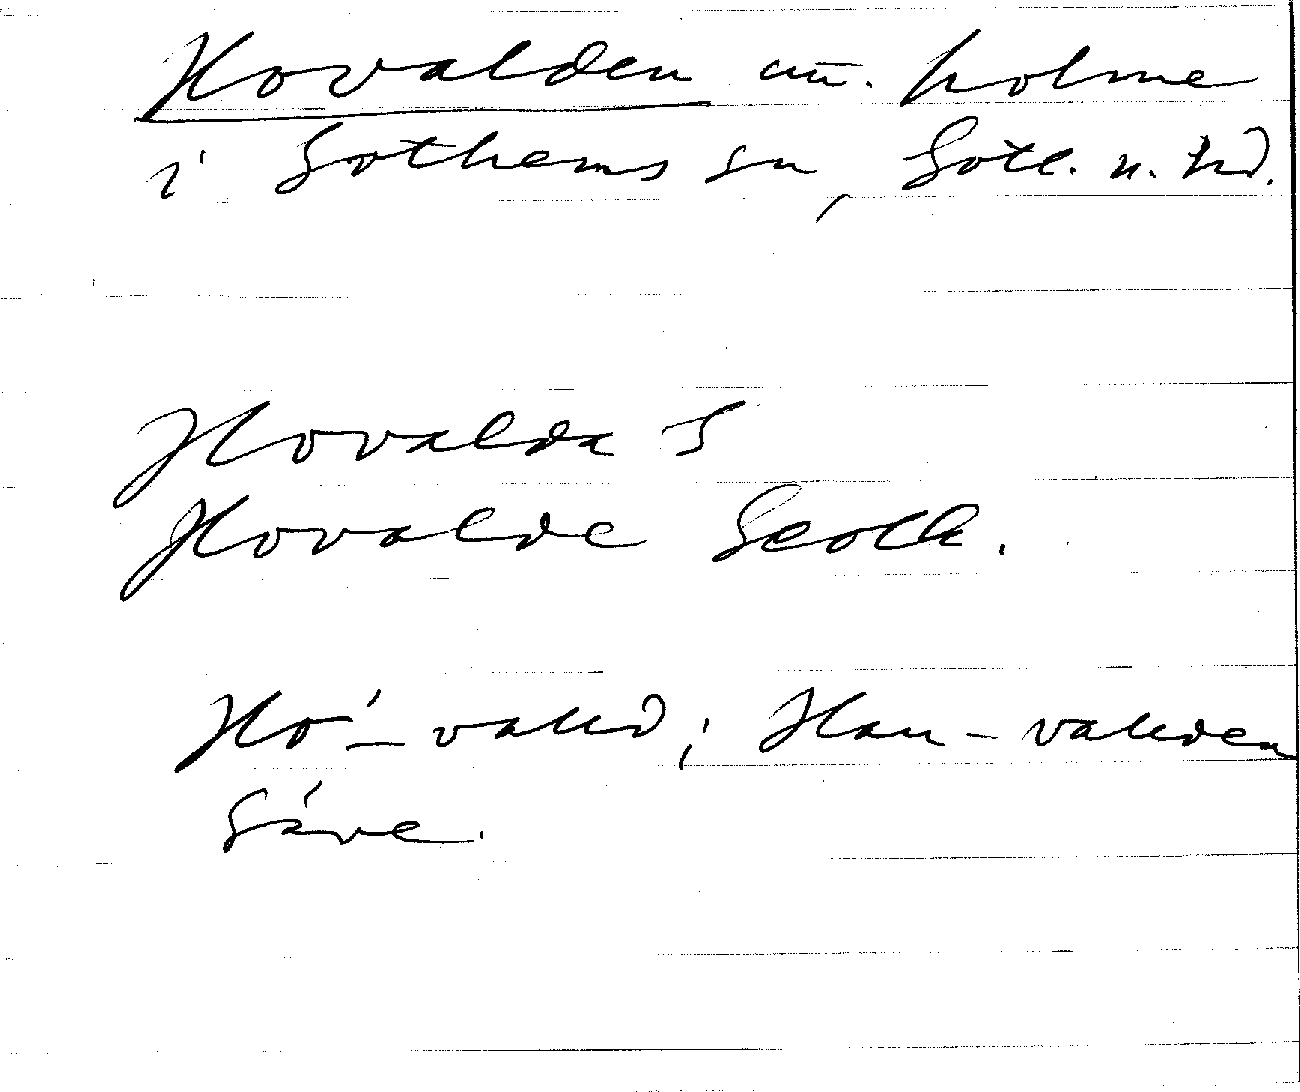 Hovalden a㉰. holme
i Gothems sn, Gotl. n. hd.
Hovalda S
Hovalde Geolk.
Hó'- valld; Hau - vallden
Säve.